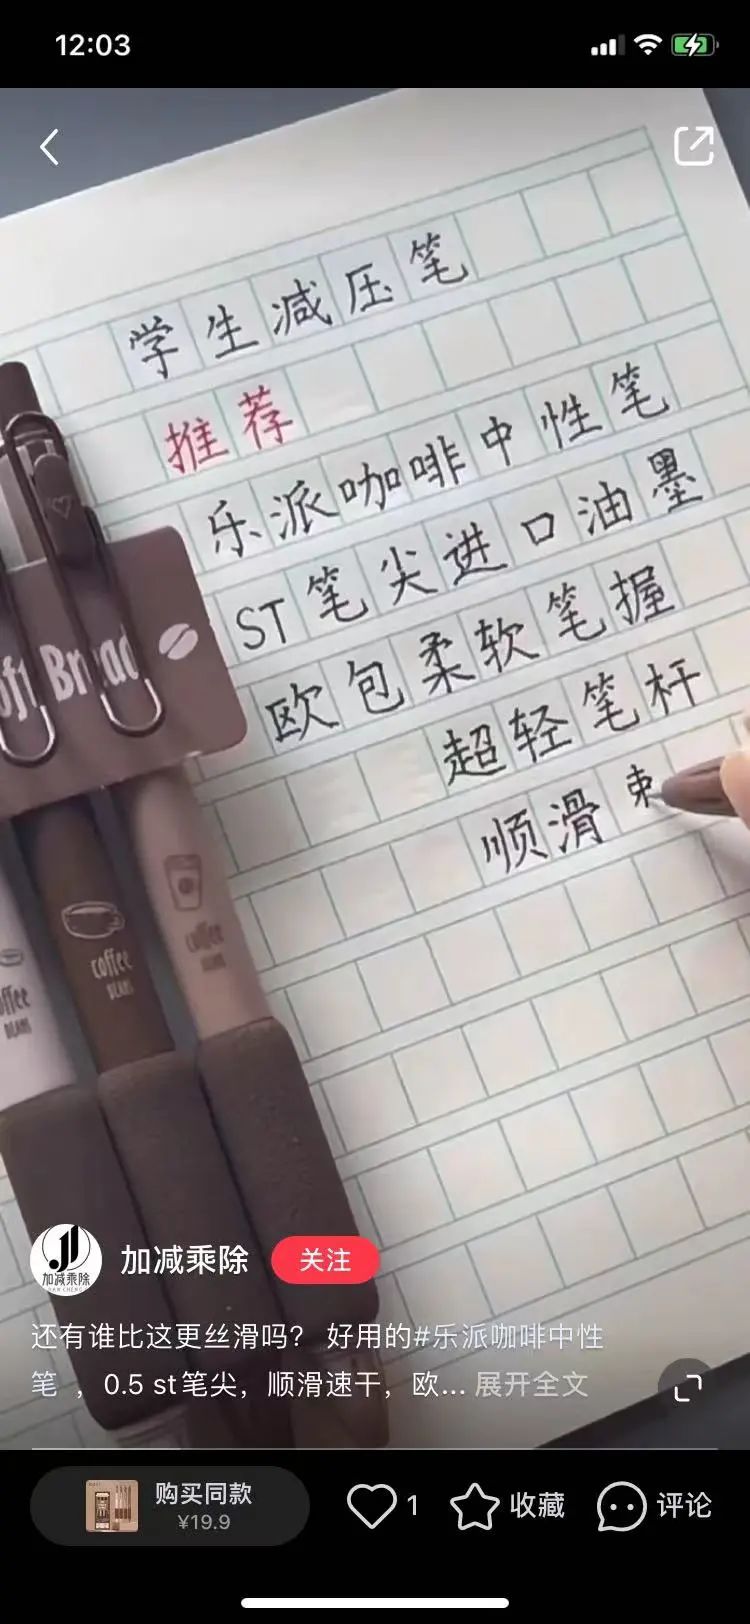 12:03
学生减压笔
推荐
乐派咖啡中性笔
ST笔尖进口油墨
欧包柔软笔握
超轻笔杆
顺滑
Bread
coffee
BEANS
coffee
BEANS
加减乘除
加减乘除 关注
还有谁比这更丝滑吗？ 好用的#乐派咖啡中性
笔 ，0.5 st笔尖，顺滑速干，欧... 展开全文
购买同款
¥19.9
1
收藏
评论